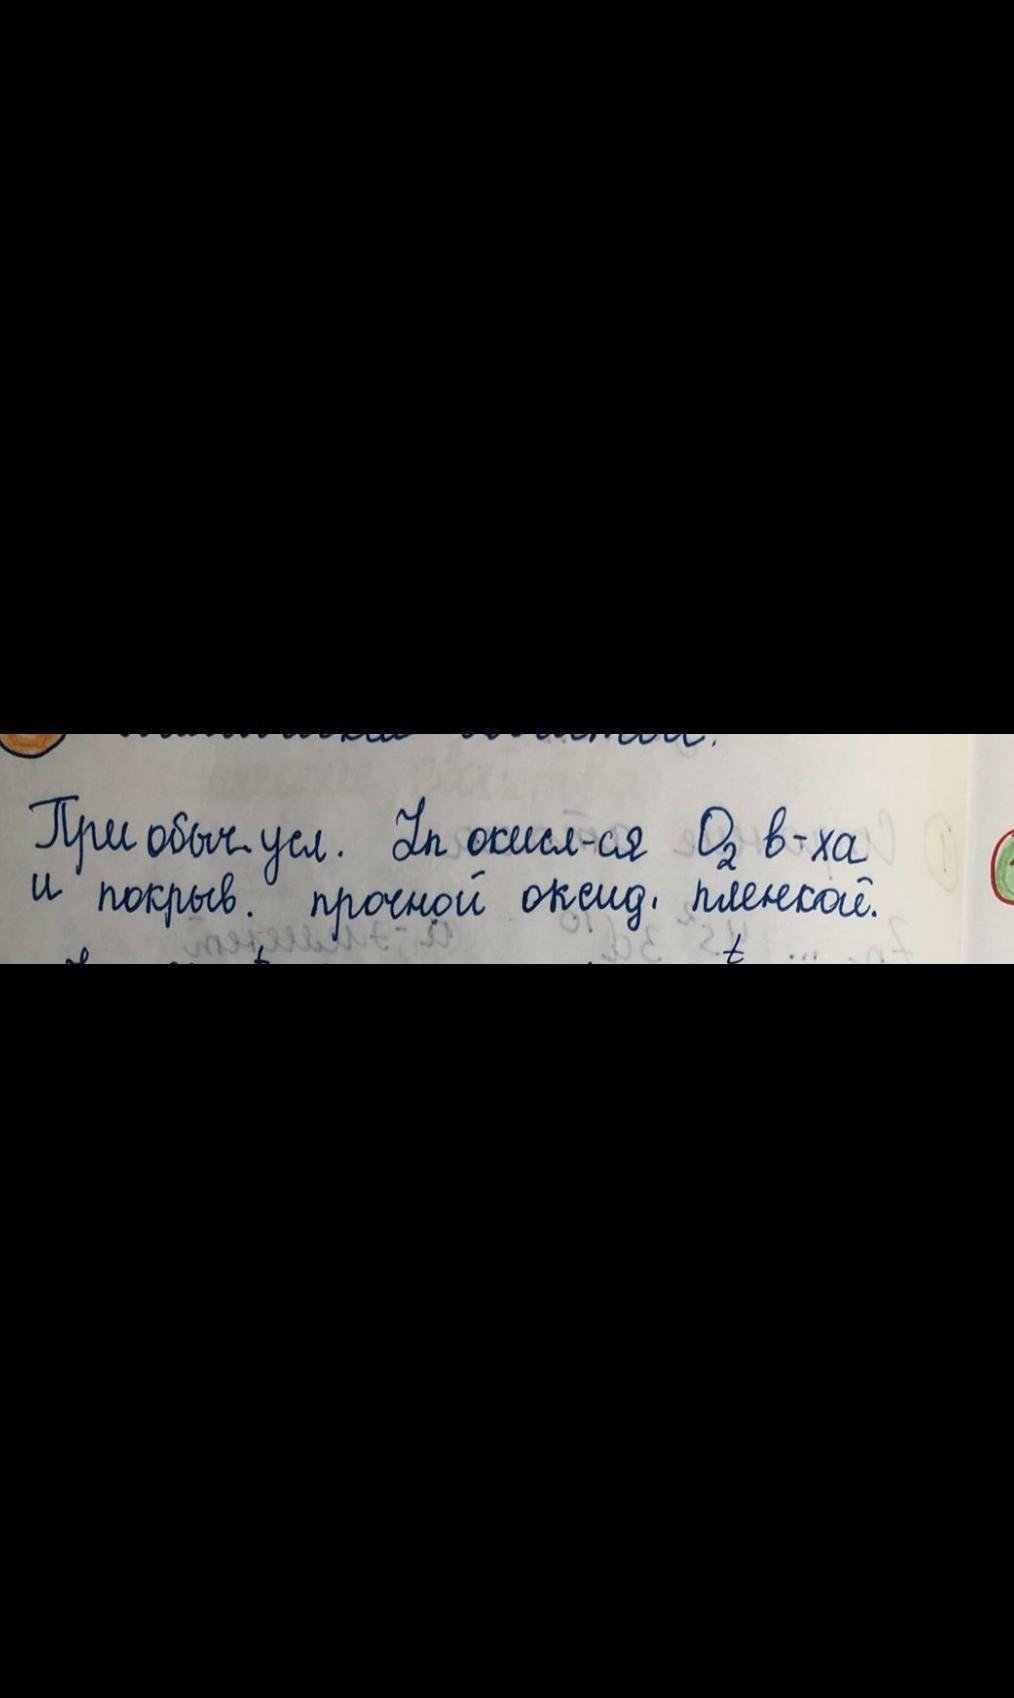 При обыч. усл. Zn окисл-ся O₂ в-ха
и покрыв. прочной оксид. пленкой.